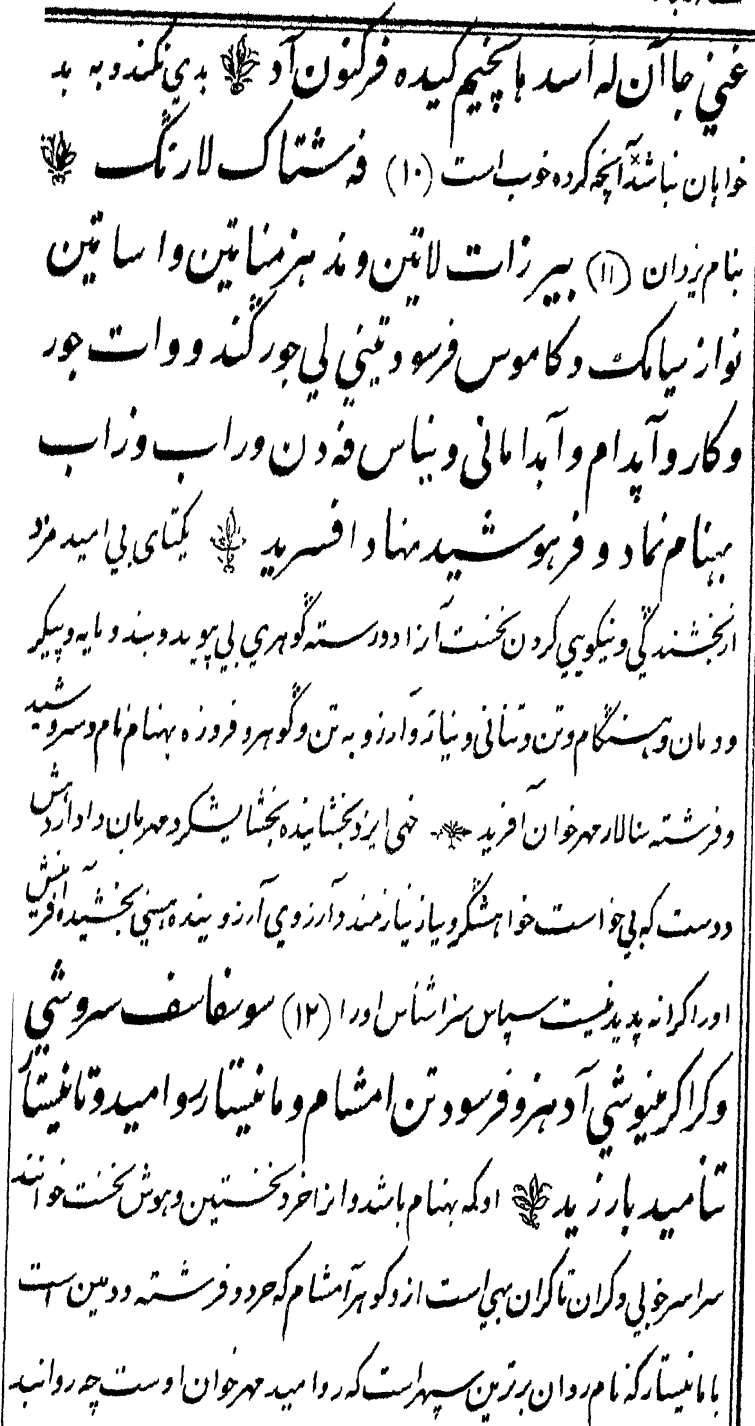 غني جا آن له اسد ها پخيم كيده فركنون آد بدي نكند و به بد
خواهان نباشد آنچه كرده خوب است (۱۰) فه شتاك لارنگ
بنام يزدان (۱۱) بيرزات لاتين و ند هزمناتين وا ساتين
نواز سيامك و كاموس فرسود تيني لي جور گند و وات جور
و كار و آپدام و آبدامانی و نياس فه دن وراب وزاب
بهنام نماد و فرهوشيد منهاد افسريد يكتای بي اميد مزد
از بخشندگي و نيكويي كردن نخست آزاد و رسته گوهري بي پويد و بند و مايه و پيكر
و دمان و هنگام و تن و تنانی و نياز و آرزو به تن و گوهر و فروزه بهنام نام و سروشيد
و فرشته سالار مهر خوان آفريد خهی ايزد بخشاينده بخشايشگرد مهربان دادار دهش
دوست كه بي خواست خواهشگر و ياز نيازمند و آرزوي آرزو بينده هستي بخشيد آفرينش
اورا كرانه پديد نيست سپاس سزا شناس اورا (۱۲) سوسفاسف سروشي
و كرا كر مينوشي آد هنرو فرسود تن امشام و مانيستار سواميد و تانيستار
تناميد بارزيد او كه بهنام باشد و انرا خرد نخستين و هوش نخست خوانند
سراسر خوبي و كران تا كران بهي است ازو گوهر آمشام كه خرد و فرشته دومين است
با مانيستار كه نام روان برترين سپهر است كه رواميد مهر خوان اوست چه روانبد